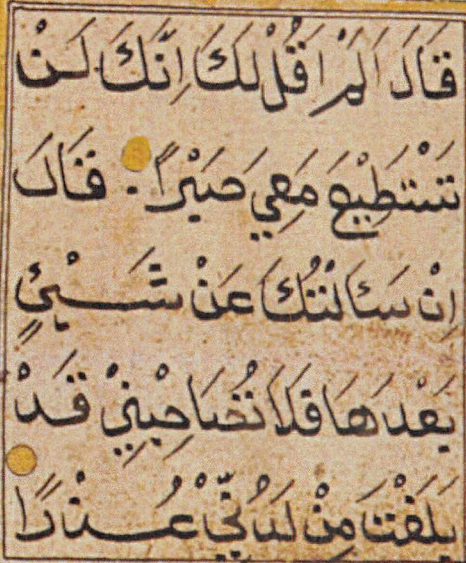 قَالَ اَلَمْ اَقُلْ لَكَ اِنَّكَ لَنْ
تَسْتَطِيْعَ مَعِيَ صَبْرًا. قَالَ
اِنْ سَئَالْتُكَ عَنْ شَىْءٍ
بَعْدَهَا فَلَا تُصَاحِبْنِيْ قَدْ
بَلَغْتَ مِنْ لَدُنِّيْ عُذْرًا